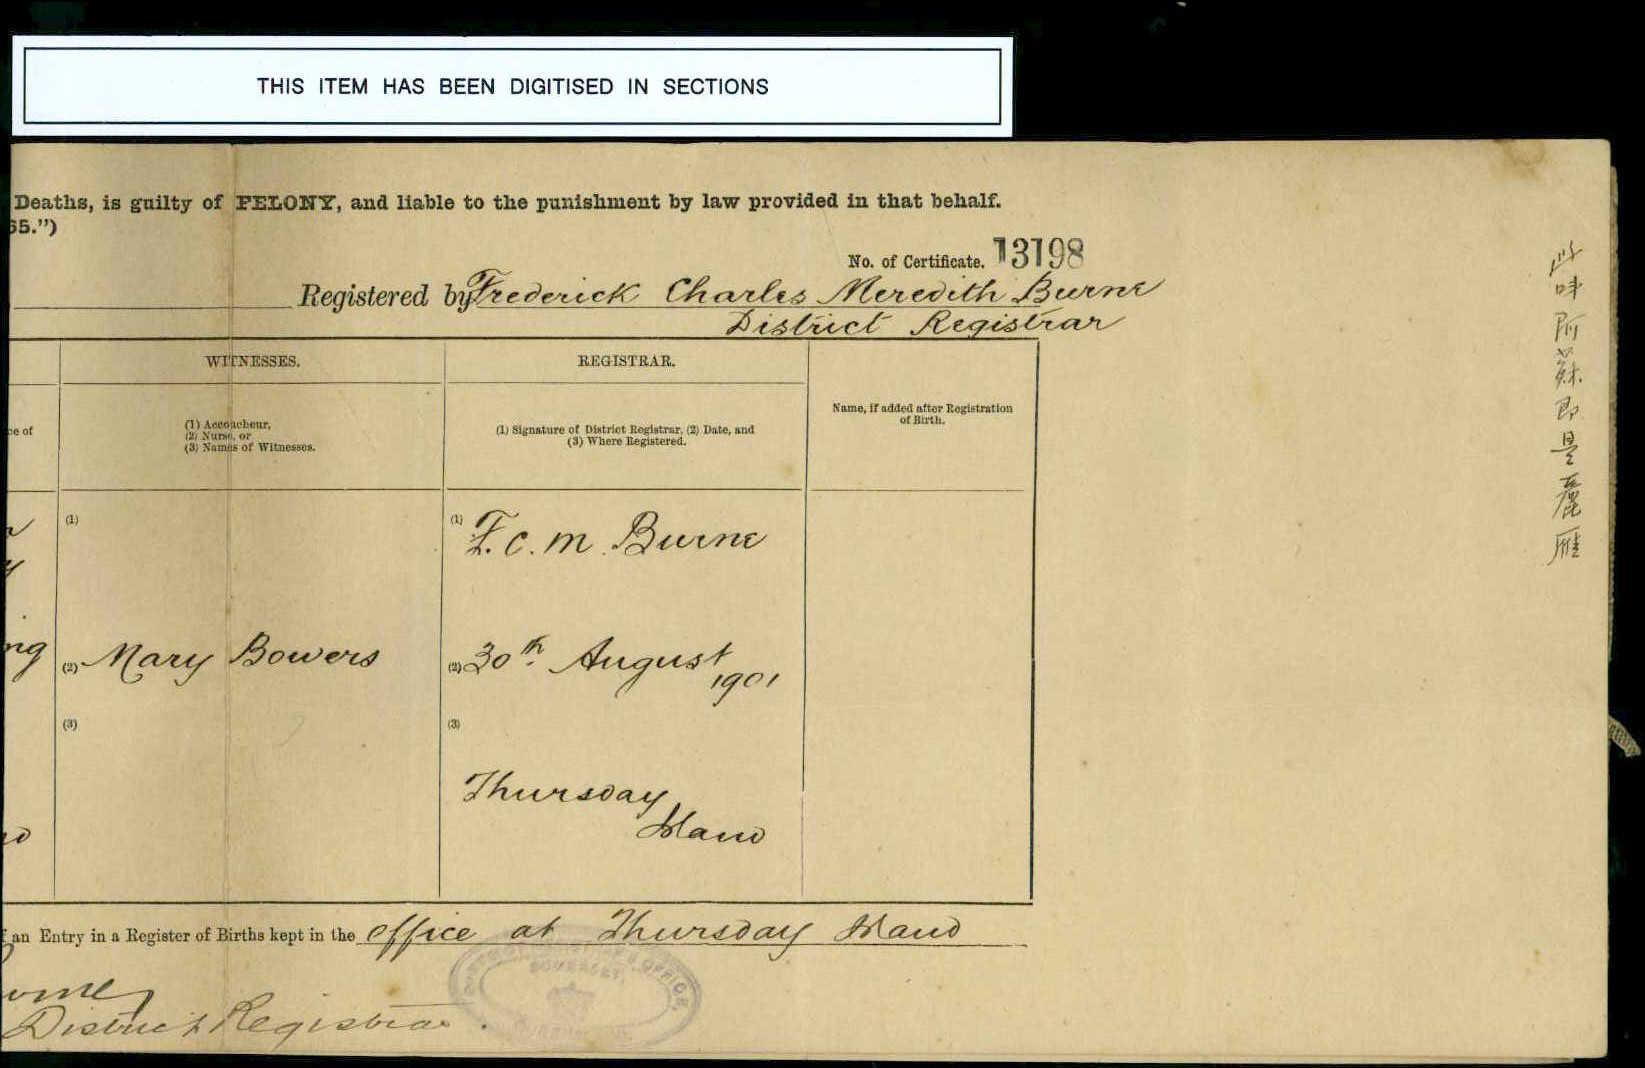 THIS ITEM HAS BEEN DIGITISED IN SECTIONS
Deaths, is guilty of FELONY, and liable to the punishment by law provided in that behalf.
65.")
No. of Certificate. 13198
Registered by Frederick Charles Meredith Burne
District Registrar
WITNESSES.
REGISTRAR.
(1) Accoucheur,
(2) Nurse, or
(3) Names of Witnesses.
(1) Signature of District Registrar, (2) Date, and
(3) Where Registered.
Name, if added after Registration
of Birth.
(1)
(1) F. C. M. Burne
ng
(2) Mary Bowers
(2) 30th August
1901
(3)
(3)
Thursday
Island
an Entry in a Register of Births kept in the office at Thursday Island
District Registrar.
SOMERSET,
此
阿
蘇
即
是
雁